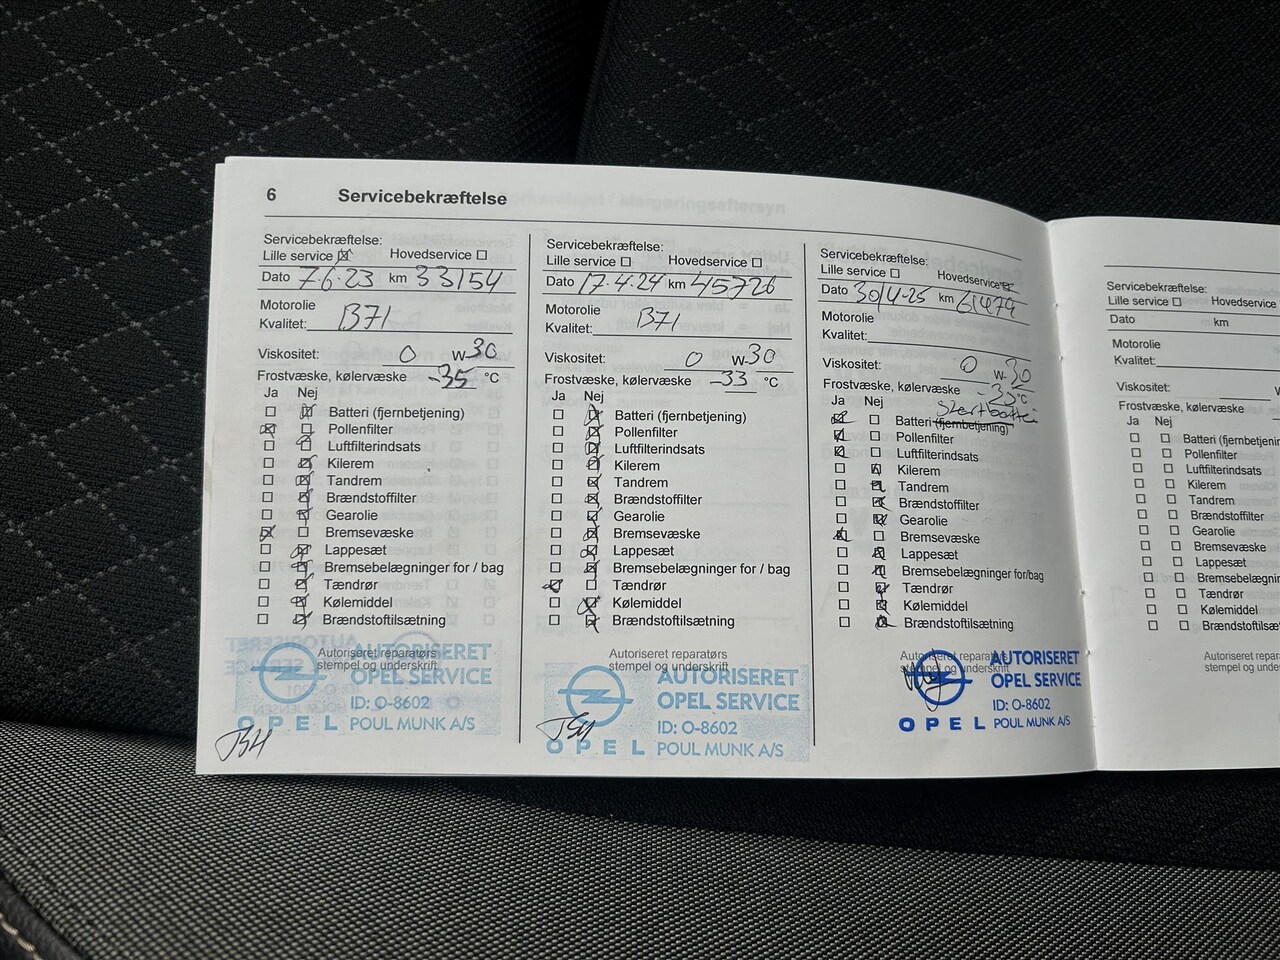 6 Servicebekræftelse
Servicebekræftelse:
Lille service Hovedservice
Dato 7.6.23 km 33154
Motorolie
Kvalitet: B71
Viskositet: 0 W-30
Frostvæske, kølervæske -35 °C
Ja Nej
Batteri (fjernbetjening)
Pollenfilter
Luftfilterindsats
Kilerem
Tandrem
Brændstoffilter
Gearolie
Bremsevæske
Lappesæt
Bremsebelægninger for / bag
Tændrør
Kølemiddel
Brændstoftilsætning
Autoriseret reparatørs
stempel og underskrift
AUTORISERET
OPEL SERVICE
ID: O-8602
OPEL POUL MUNK A/S
Servicebekræftelse:
Lille service Hovedservice
Dato 17.4.24 km 45726
Motorolie
Kvalitet: B71
Viskositet: 0 W-30
Frostvæske, kølervæske -33 °C
Ja Nej
Batteri (fjernbetjening)
Pollenfilter
Luftfilterindsats
Kilerem
Tandrem
Brændstoffilter
Gearolie
Bremsevæske
Lappesæt
Bremsebelægninger for / bag
Tændrør
Kølemiddel
Brændstoftilsætning
Autoriseret reparatørs
stempel og underskrift
AUTORISERET
OPEL SERVICE
ID: O-8602
OPEL POUL MUNK A/S
Servicebekræftelse:
Lille service Hovedservice
Dato 30/4-25 km 61479
Motorolie
Kvalitet:
Viskositet: 0 W-30
Frostvæske, kølervæske -35 °C
Ja Nej
Batteri (fjernbetjening)
Pollenfilter
Luftfilterindsats
Kilerem
Tandrem
Brændstoffilter
Gearolie
Bremsevæske
Lappesæt
Bremsebelægninger for/bag
Tændrør
Kølemiddel
Brændstoftilsætning
Autoriseret reparatørs
stempel og underskrift
AUTORISERET
OPEL SERVICE
ID: O-8602
OPEL POUL MUNK A/S
Servicebekræftelse:
Lille service Hovedservice
Dato km
Motorolie
Kvalitet:
Viskositet:
Frostvæske, kølervæske
Ja Nej
Batteri (fjernbetjenin
Pollenfilter
Luftfilterindsats
Kilerem
Tandrem
Brændstoffilter
Gearolie
Bremsevæske
Lappesæt
Bremsebelægnin
Tændrør
Kølemiddel
Brændstoftilsæ
Autoriseret repara
stempel og unde